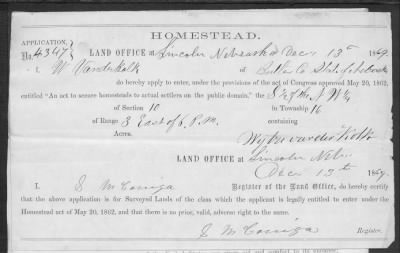 HOMESTEAD.
APPLICATION,
No. 4347
LAND OFFICE at Lincoln Nebraska Decr 13th 1869.
I, W Vanderkolk of Butler Co State of Nebraska
do hereby apply to enter, under the provisions of the act of Congress approved May 20, 1862,
entitled "An act to secure homesteads to actual settlers on the public domain," the S ½ of the N W ¼
of Section 10 in Township 16
of Range 3 East of 6 P.M. containing
Acres.
LAND OFFICE at Lincoln Neb.
Decr 13th 1869.
I, S McConiga Register of the Land Office, do hereby certify
that the above application is for Surveyed Lands of the class which the applicant is legally entitled to enter under the
Homestead act of May 20, 1862, and that there is no prior, valid, adverse right to the same.
S McConiga
Register.